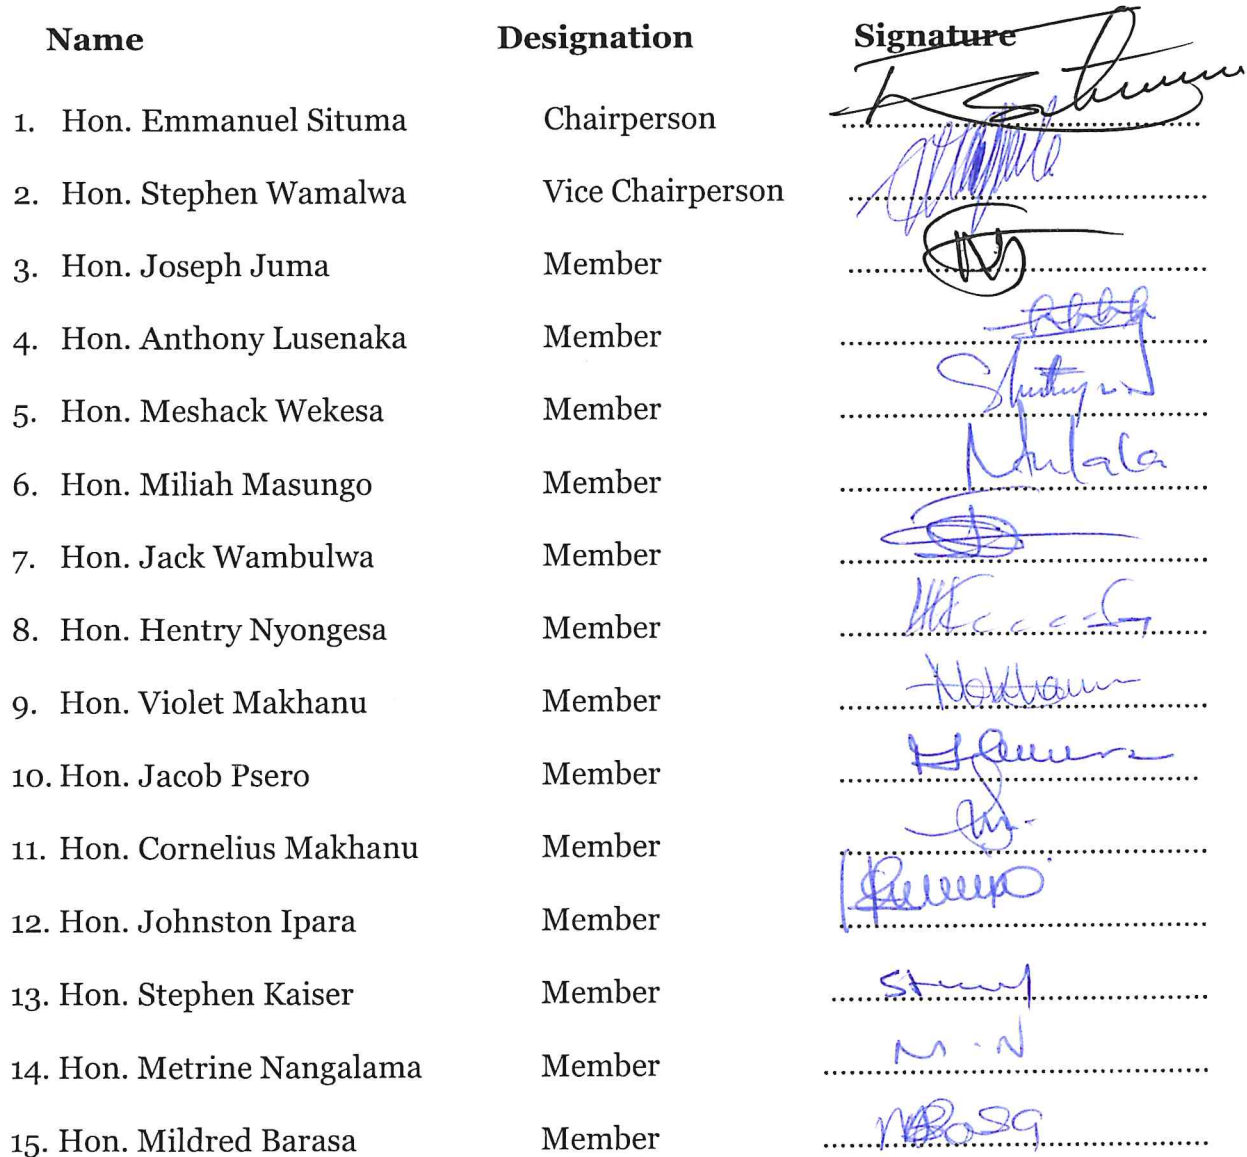 Name Designation Signature
1. Hon. Emmanuel Situma Chairperson
2. Hon. Stephen Wamalwa Vice Chairperson
3. Hon. Joseph Juma Member
4. Hon. Anthony Lusenaka Member
5. Hon. Meshack Wekesa Member
6. Hon. Miliah Masungo Member
7. Hon. Jack Wambulwa Member
8. Hon. Hentry Nyongesa Member
9. Hon. Violet Makhanu Member
10. Hon. Jacob Psero Member
11. Hon. Cornelius Makhanu Member
12. Hon. Johnston Ipara Member
13. Hon. Stephen Kaiser Member
14. Hon. Metrine Nangalama Member M.N
15. Hon. Mildred Barasa Member